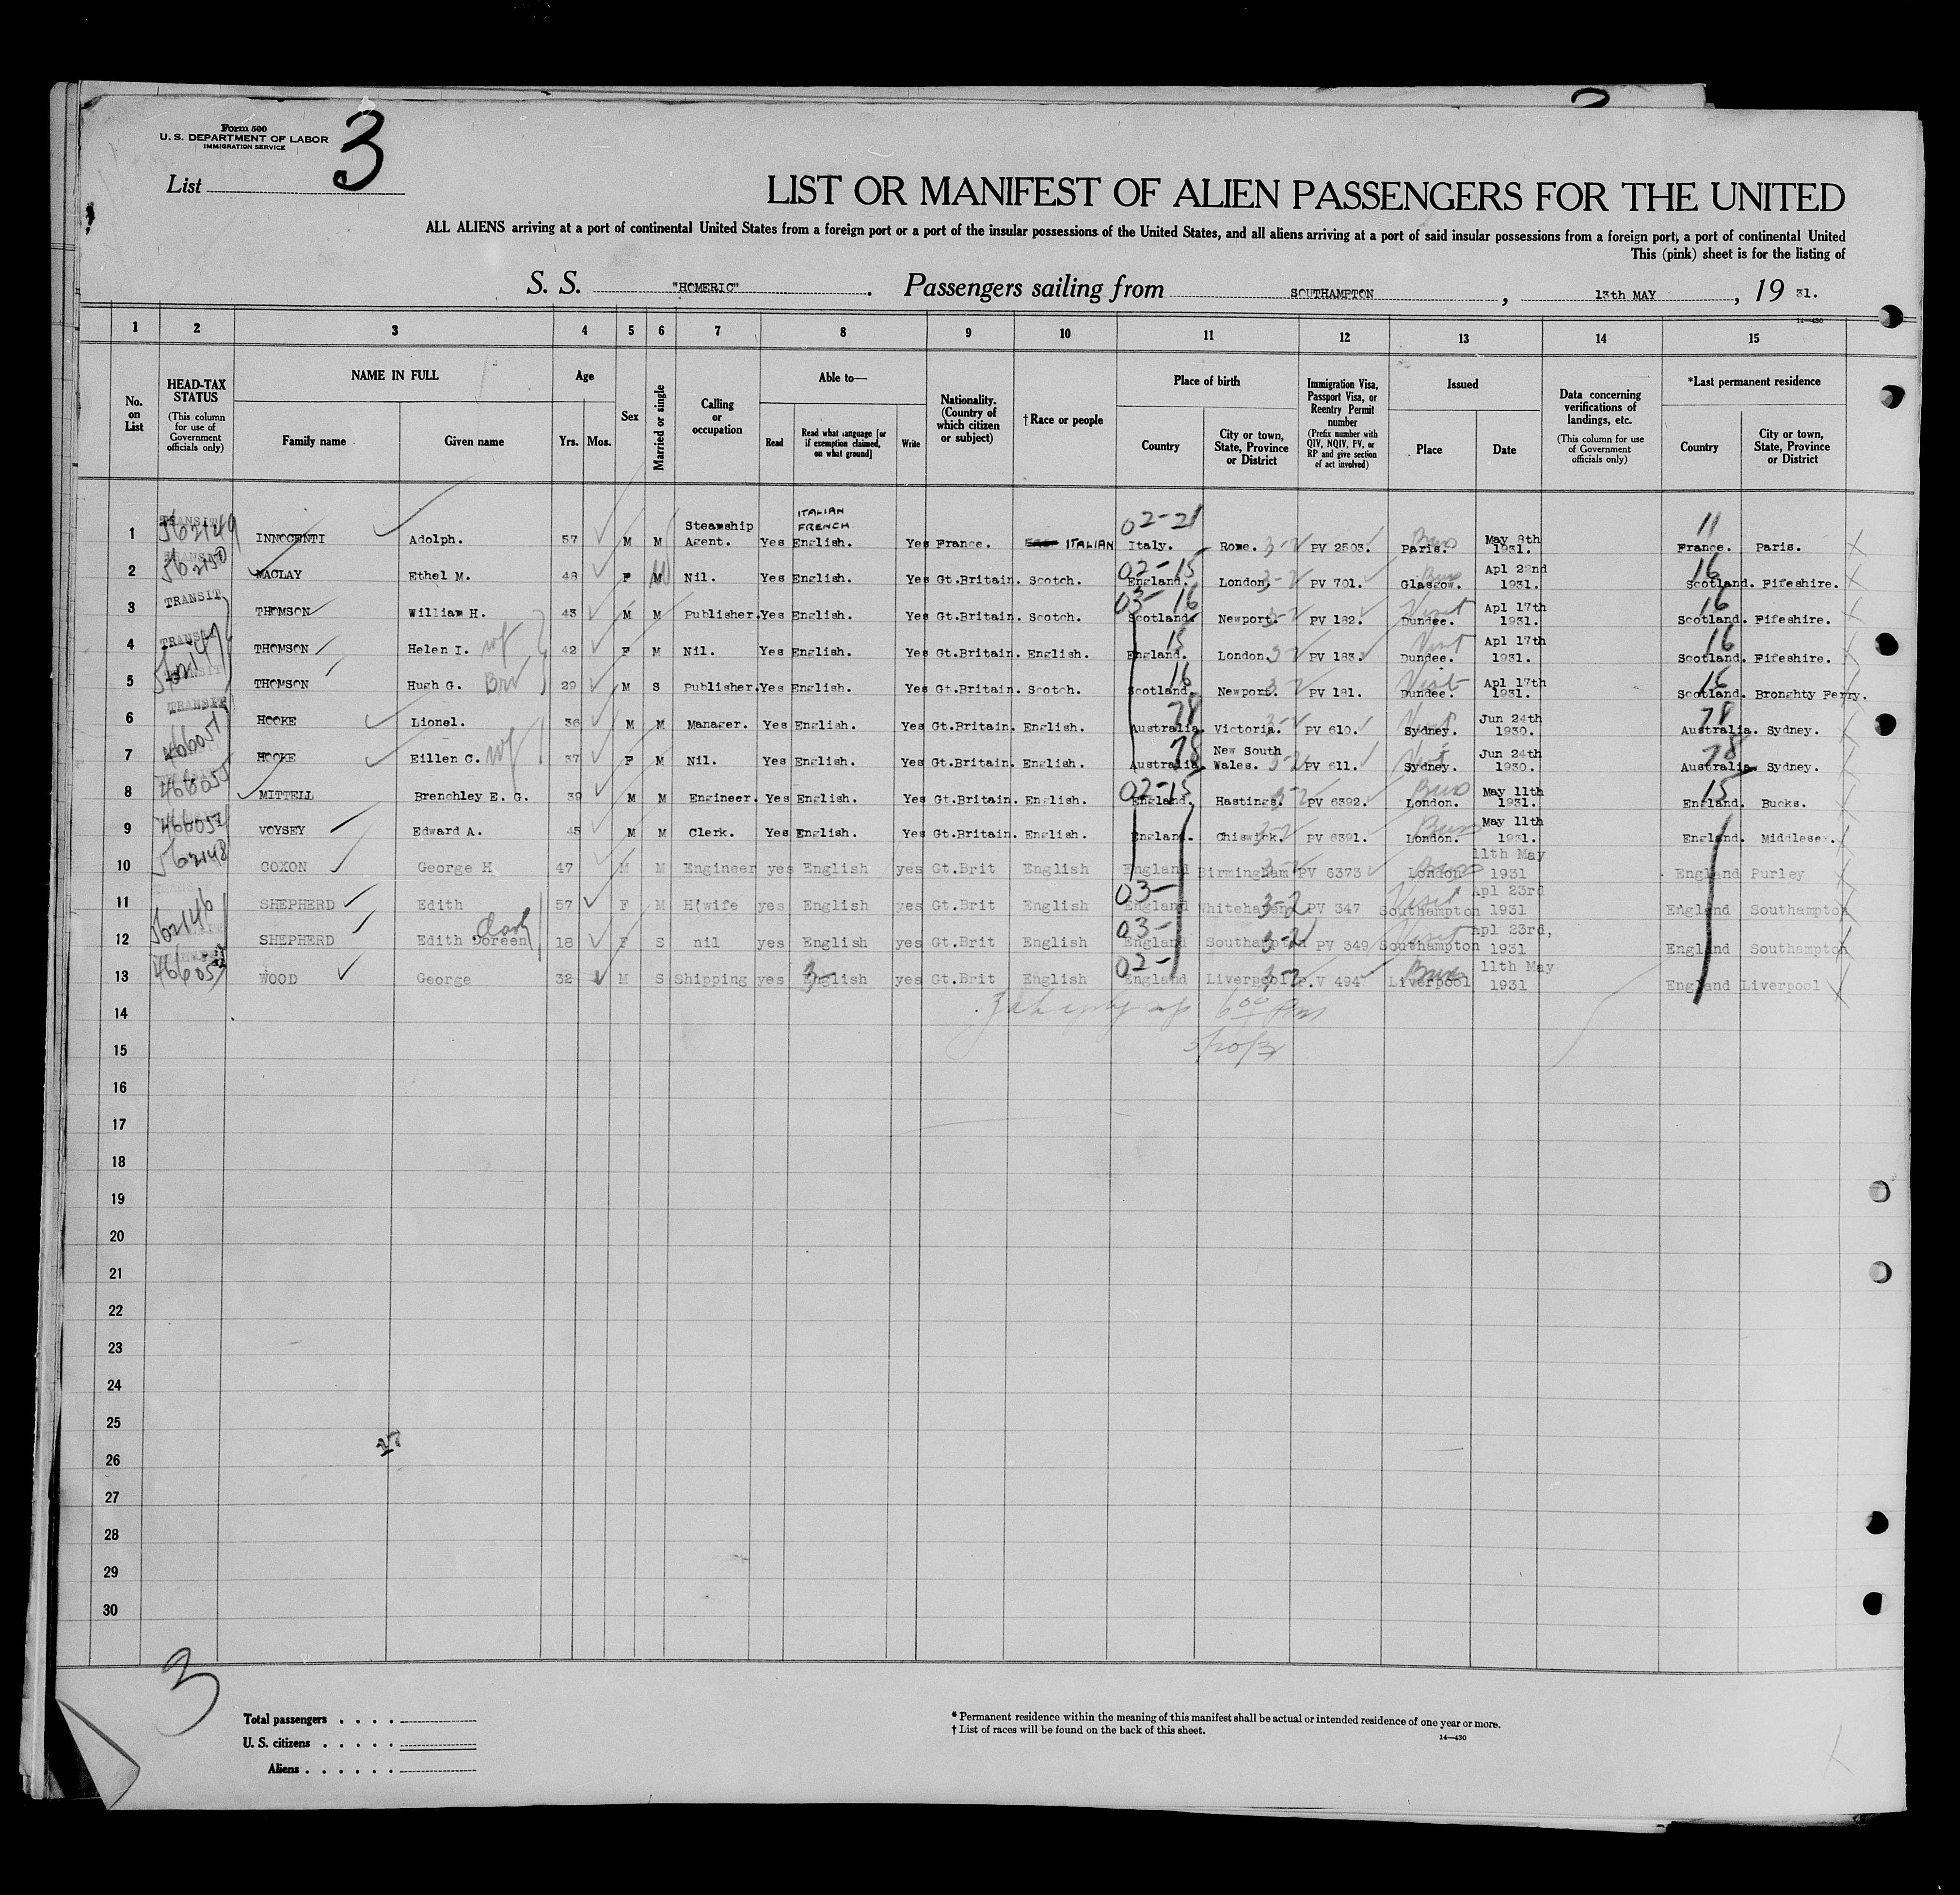 Form 500
U. S. DEPARTMENT OF LABOR
IMMIGRATION SERVICE
List 3
LIST OR MANIFEST OF ALIEN PASSENGERS FOR THE UNITED
ALL ALIENS arriving at a port of continental United States from a foreign port or a port of the insular possessions of the United States, and all aliens arriving at a port of said insular possessions from a foreign port, a port of continental United
This (pink) sheet is for the listing of
S. S. "HOMERIC". Passengers sailing from SOUTHAMPTON, 13th MAY, 19 31.
14—430
1 2 3 4 5 6 7 8 9 10 11 12 13 14 15
No. on List
HEAD-TAX STATUS (This column for use of Government officials only)
NAME IN FULL Family name Given name
Age Yrs. Mos.
Sex
Married or single
Calling or occupation
Able to— Read Read what language [or if exemption claimed, on what ground] Write
Nationality. (Country of which citizen or subject)
†Race or people
Place of birth Country City or town, State, Province or District
Immigration Visa, Passport Visa, or Reentry Permit number (Prefix number with QIV, NQIV, PV, or RP and give section of act involved)
Issued Place Date
Data concerning verifications of landings, etc. (This column for use of Government officials only)
*Last permanent residence Country City or town, State, Province or District
1 TRANSIT 562149 INNOCENTI Adolph. 57 M M Steamship Agent. Yes ITALIAN FRENCH. English. Yes France. ITALIAN 02-21 Italy. Rome. 3-2 PV 2503. Paris. May 8th 1931. 11 France. Paris.
2 TRANSIT 562150 MACLAY Ethel M. 48 F M Nil. Yes English. Yes Gt.Britain. Scotch. 02-15 England. London. 3-2 PV 701. Glasgow. Apl 22nd 1931. 16 Scotland. Fifeshire.
3 TRANSIT THOMSON William H. 43 M M Publisher. Yes English. Yes Gt.Britain. Scotch. 03-16 Scotland. Newport. 3-2 PV 182. Visit Dundee. Apl 17th 1931. 16 Scotland. Fifeshire.
4 TRANSIT 562147 THOMSON Helen I. wf 42 F M Nil. Yes English. Yes Gt.Britain. English. 15 England. London. 3-2 PV 183. Visit Dundee. Apl 17th 1931. 16 Scotland. Fifeshire.
5 TRANSIT THOMSON Hugh G. Bro 29 M S Publisher. Yes English. Yes Gt.Britain. Scotch. 16 Scotland. Newport. 3-2 PV 181. Visit Dundee. Apl 17th 1931. 16 Scotland. Bronghty Ferry.
6 TRANSIT 466051 HOOKE Lionel. 36 M M Manager. Yes English. Yes Gt.Britain. English. 78 Australia. Victoria. 3-2 PV 610. Visit Sydney. Jun 24th 1930. 78 Australia. Sydney.
7 HOOKE Eillen C. wf 37 F M Nil. Yes English. Yes Gt.Britain. English. 78 Australia. New South Wales. 3-2 PV 611. Visit Sydney. Jun 24th 1930. 78 Australia. Sydney.
8 MITTELL Brenchley E. G. 39 M M Engineer. Yes English. Yes Gt.Britain. English. 02-15 England. Hastings. 3-2 PV 6392. Bus London. May 11th 1931. 15 England. Bucks.
9 VOYSEY Edward A. 45 M M Clerk. Yes English. Yes Gt.Britain. English. England. Chiswick. 3-2 PV 6391. Bus London. May 11th 1931. England. Middlesex.
10 562148 COXON George H 47 M M Engineer yes English yes Gt.Brit English England Birmingham 3-2 PV 6373 Bus London 11th May 1931 England Purley
11 SHEPHERD Edith 57 F M H(wife yes English yes Gt.Brit English 03- England Whitehaven 3-2 PV 347 Visit Southampton Apl 23rd 1931 England Southampton
12 562146 SHEPHERD Edith Doreen 18 F S nil yes English yes Gt.Brit English 03- England Southampton 3-2 PV 349 Visit Southampton Apl 23rd, 1931 England Southampton
13 WOOD George 32 M S Shipping yes English yes Gt.Brit English 02- England Liverpool 3-2 P.V 494 Bus Liverpool 11th May 1931 England Liverpool
14 6 00 Pm
15 5/20/31
16
17
18
19
20
21
22
23
24
25
26
27
28
29
30
3
Total passengers
U. S. citizens
Aliens
* Permanent residence within the meaning of this manifest shall be actual or intended residence of one year or more.
† List of races will be found on the back of this sheet.
14—430